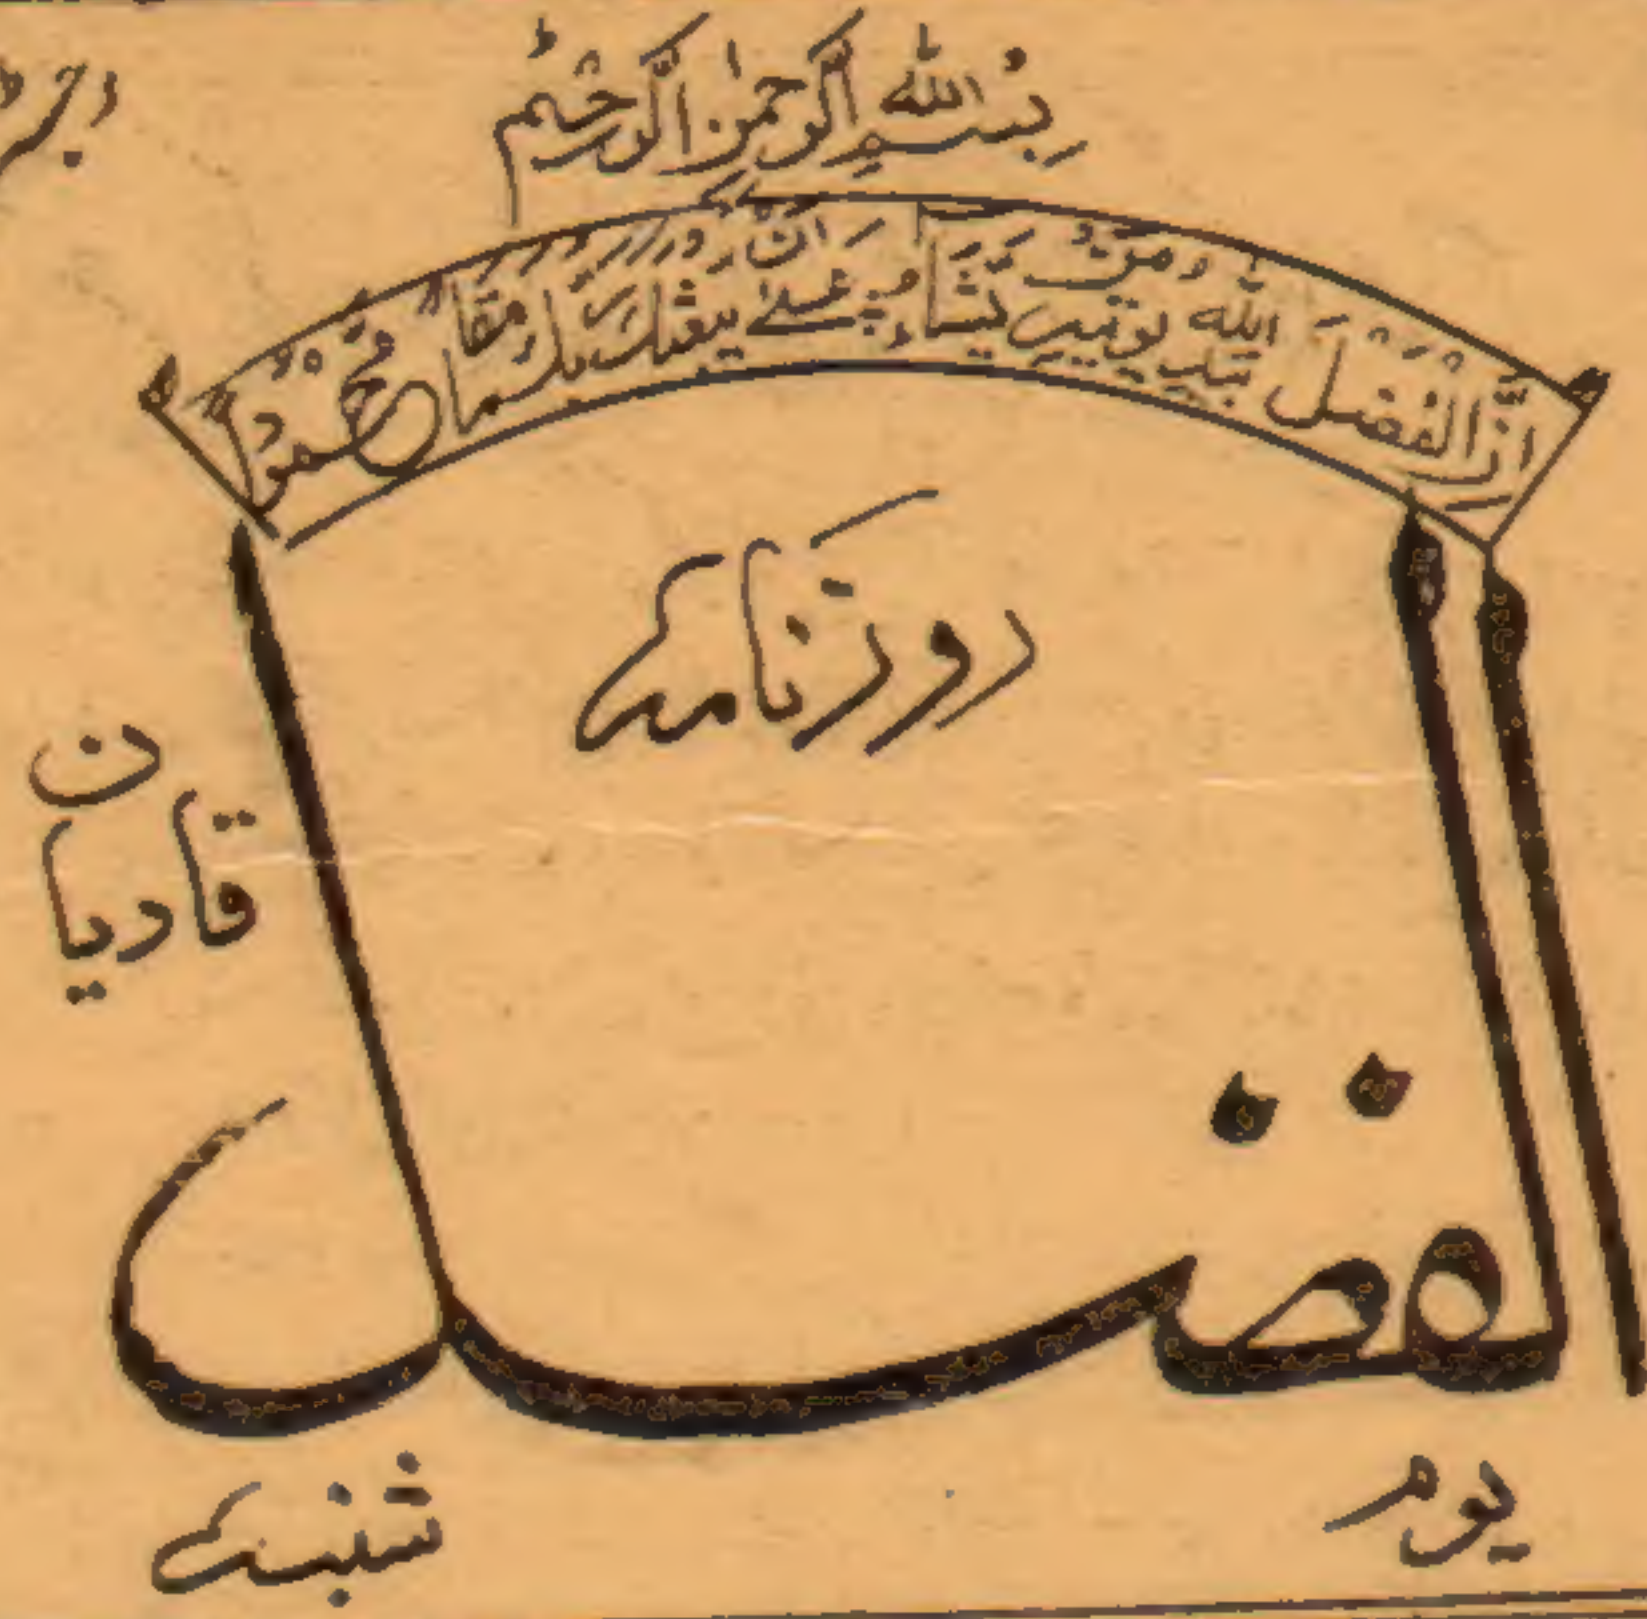 بِسْمِ اللهِ الرَّحْمٰنِ الرَّحِیْمِ
اِنَّ الْفَضْلَ بِیَدِ اللهِ یُؤْتِیْهِ مَنْ یَّشَآءُ عَسٰۤی اَنْ یَّبْعَثَکَ رَبُّکَ مَقَامًا مَّحْمُوْدًا
روزنامہ
قادیان
الفضل
یوم شنبہ